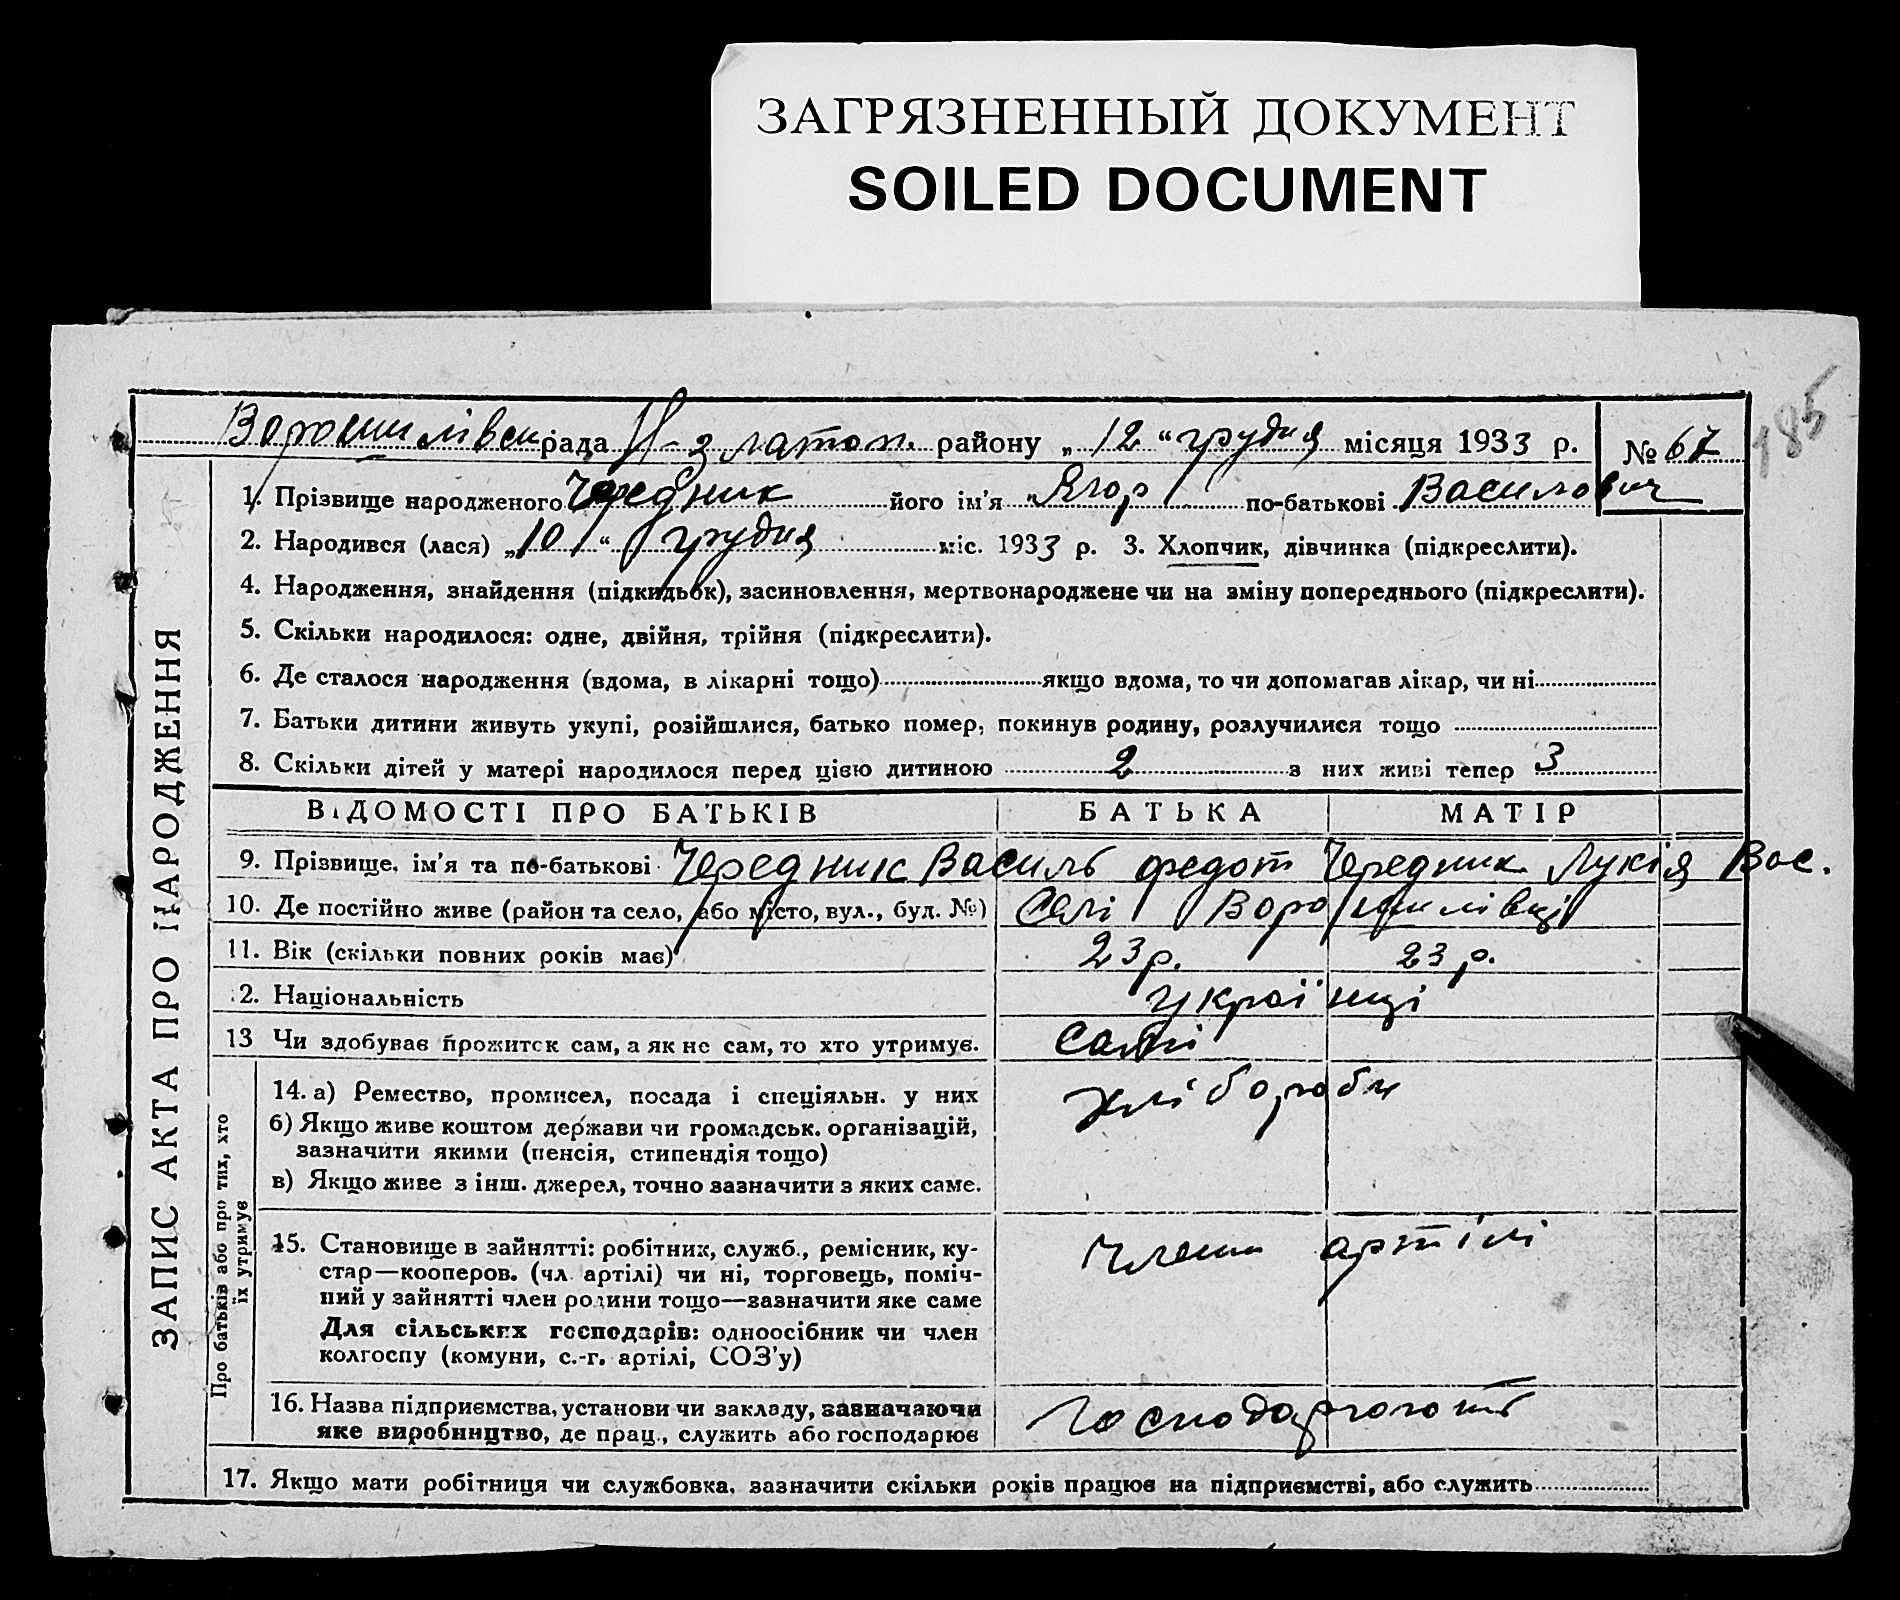 ЗАГРЯЗНЕННЫЙ ДОКУМЕНТ
SOILED DOCUMENT
185
Ворошилівськ рада Н-златоп. району „12“ грудня місяця 1933 р. № 67
1. Прізвище народженого Чередник його ім'я Ягор по-батькові Василович
2. Народився (лася) „10“ грудня міс. 1933 р. 3. Хлопчик, дівчинка (підкреслити).
4. Народження, знайдення (підкидьок), засиновлення, мертвонароджене чи на зміну попереднього (підкреслити).
5. Скільки народилося: одне, двійня, трійня (підкреслити).
6. Де сталося народження (вдома, в лікарні тощо) якщо вдома, то чи допомагав лікар, чи ні
7. Батьки дитини живуть укупі, розійшлися, батько помер, покинув родину, розлучилися тощо
8. Скільки дітей у матері народилося перед цією дитиною 2 з них живі тепер 3
ВІДОМОСТІ ПРО БАТЬКІВ БАТЬКА МАТІР
9. Прізвище, ім'я та по-батькові Чередник Василь Федот Чередник Лукія Вас.
10. Де постійно живе (район та село, або місто, вул., буд. №) Селі Ворошилівці
11. Вік (скільки повних років має) 23 р. 23 р.
12. Національність українці
13 Чи здобуває прожиток сам, а як не сам, то хто утримує. Самі
14. а) Ремество, промисел, посада і спеціяльн. у них хлібороби
б) Якщо живе коштом держави чи громадськ. організацій,
зазначити якими (пенсія, стипендія тощо)
в) Якщо живе з інш. джерел, точно зазначити з яких саме.
15. Становище в зайнятті: робітник, служб., ремісник, ку-
стар—кооперов. (чл. артілі) чи ні, торговець, поміч-
ний у зайнятті член родини тощо—зазначити яке саме
Для сільських господарів: одноосібник чи член
колгоспу (комуни, с.-г. артілі, СОЗ'у)
Члени артілі
16. Назва підприємства, установи чи закладу, зазначаючи
яке виробництво, де прац., служить або господарює
17. Якщо мати робітниця чи службовка, зазначити скільки років працює на підприємстві, або служить
ЗАПИС АКТА ПРО НАРОДЖЕННЯ
Про батьків або про тих, хто
їх утримує